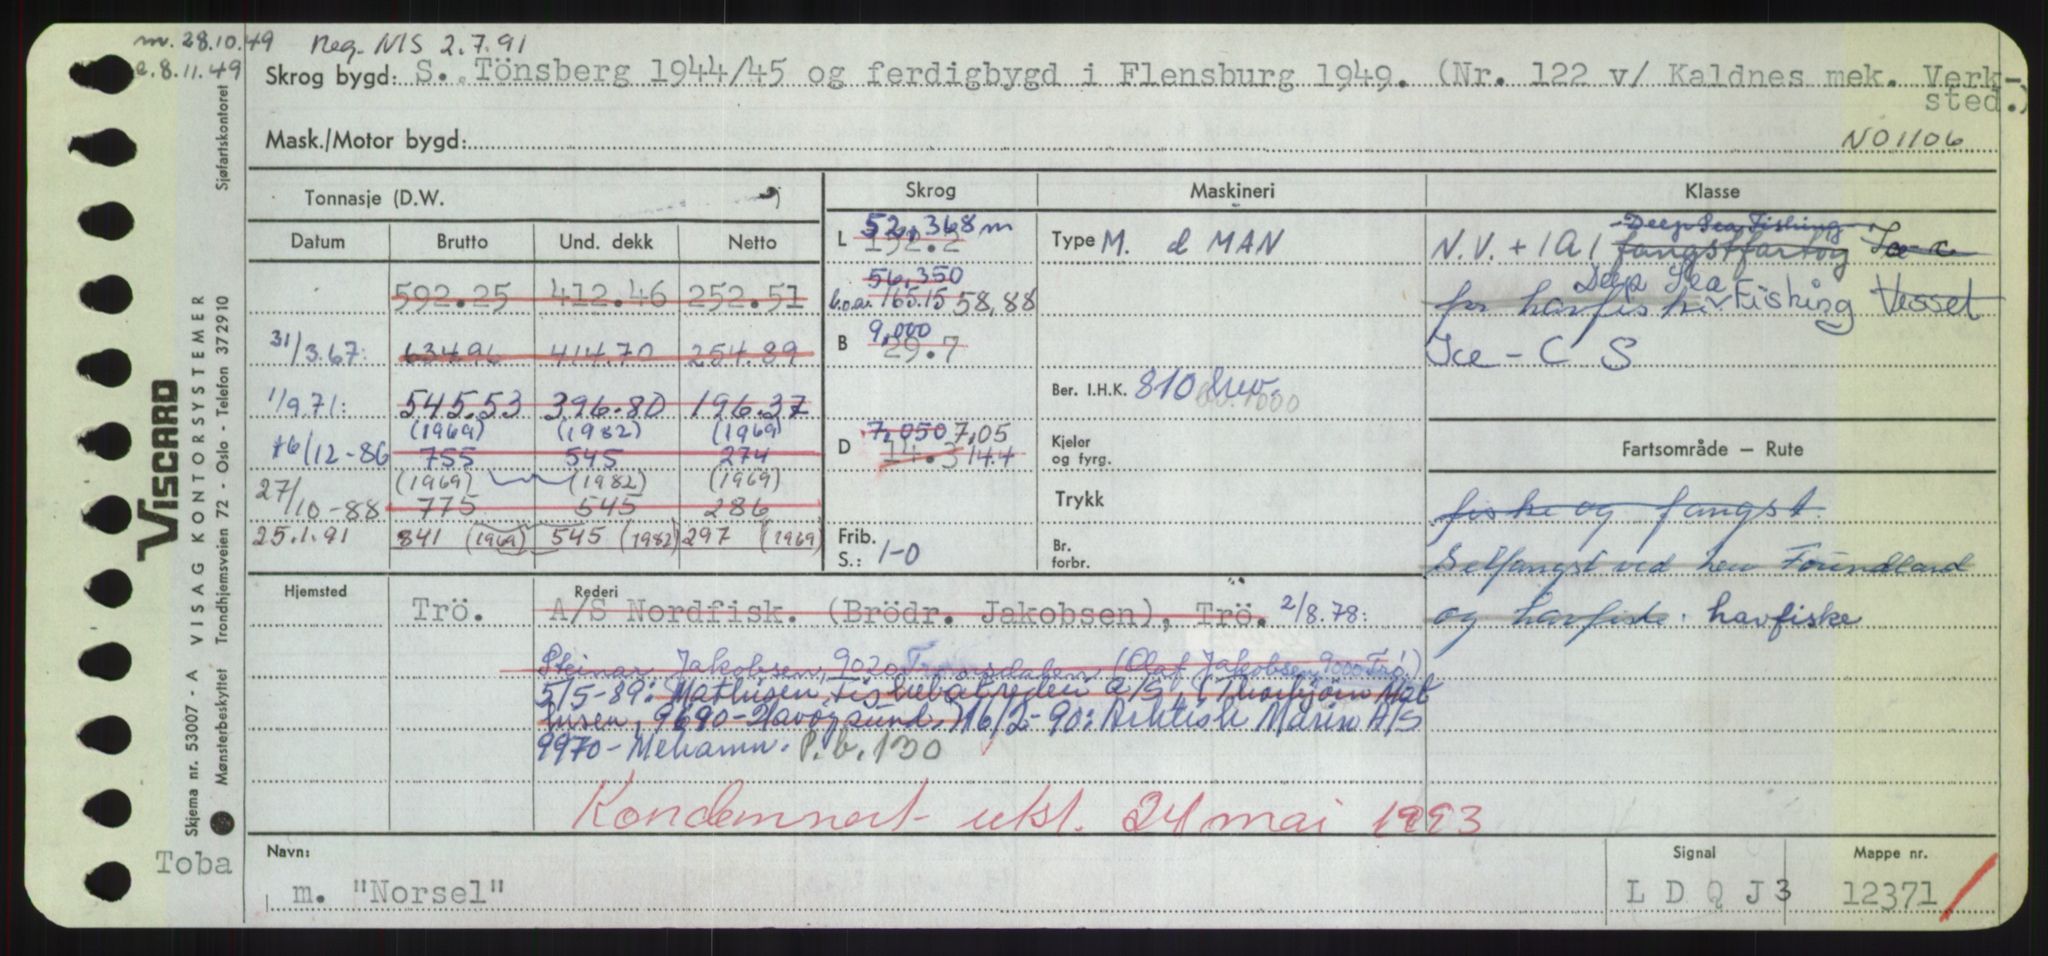 m. 28.10.49 Reg. NIS 2.7.91
e. 8.11.49
Skrog bygd: S. Tönsberg 1944/45 og ferdigbygd i Flensburg 1949. (Nr. 122 v/ Kaldnes mek. Verk-
sted.)
Mask./Motor bygd: NO1106
Tonnasje (D.W.
Skrog Maskineri Klasse
Datum Brutto Und. dekk Netto
592.25 412.46 252.51
31/3.67: 634.96 414.70 254.89
1/9.71: 545.53 396.80 196.37
(1969) (1982) (1969)
16/12-86 755 545 274
(1969) (1982) (1969)
27/10-88 775 545 286
25.1.91 841 (1969) 545 (1982) 297 (1969)
52,368 m
L 192.2
56,350
l.o.a. 165.15 58,88
9,000
B 29.7
7,050 7,05
D 14.3 14.4
Frib.
S.: 1-0
Type M. d MAN
Ber. I.H.K. 810 1000
Kjeler
og fyrg.
Trykk
Br.
forbr.
Deep Sea Fishing
N.V. + 1A1 fangstfartøg Ice C
Deep Sea
for havfiske Fishing Vessel
Ice - C S
Fartsområde — Rute
fiske og fangst.
Selfangst ved New Foundland
og havfiske. havfiske
Hjemsted Rederi
Trö. A/S Nordfisk. (Brödr. Jakobsen), Trö. 2/8.78:
Steinar Jakobsen, 9020 Tromsdalen (Olaf Jakobsen, 9000 Trö.)
5/5-89: Mathisen Fiskebåtrederi A/S, (Thorbjørn Mat
hisen, 9690-Havøysund.) 16/2-90: Arktisk Marin A/S
9970-Mehamn. P.b. 130
Kondemnert utst. 24 mai 1993
Navn: Signal Mappe nr.
m. "Norsel" L D Q J 3 12371
Toba
VISCARD
Skjema nr. 53007 - A VISAG KONTORSYSTEMER
Mønsterbeskyttet Trondhjemsveien 72 - Oslo - Telefon 372910
Sjøfartskontoret